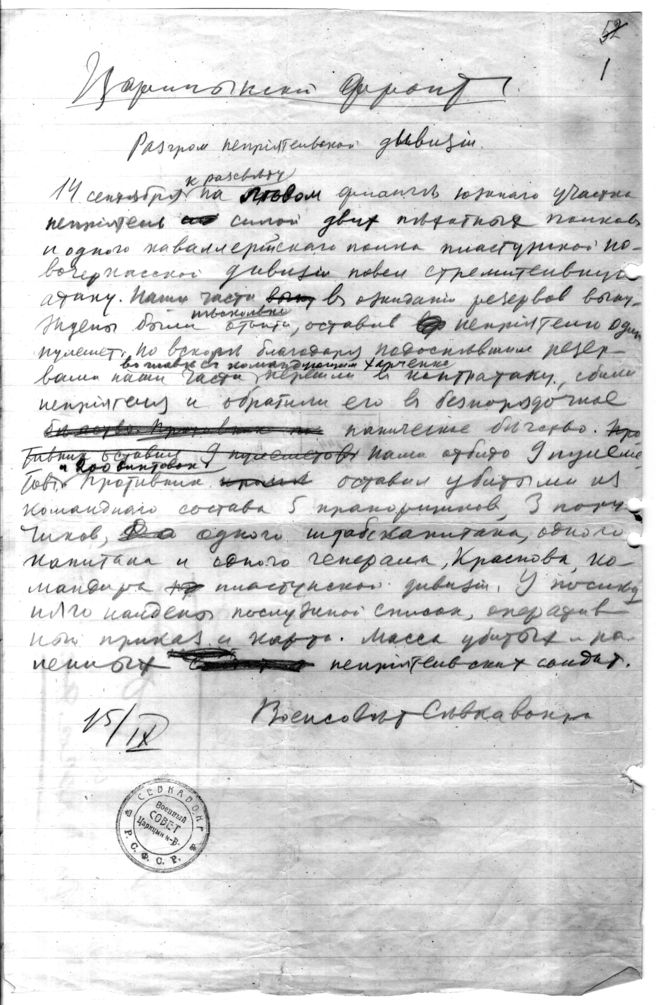 52
1
Царицынский фронт.
Разгром непріятельской дивизіи.
к разсвѣту
14 сентября на лѣвом флангѣ южнаго участка
непріятель силой двух пѣхотных полков
и одного каваллерійскаго полка пластунской но-
вочеркасской дивизіи повел стремительную
атаку. Наши части в ожиданіи резервов выну-
нѣсколько
ждены были отойти, оставив непріятелю один
пулемет, но вскорѣ благодаря подоспѣвшим резер-
во главѣ с командующим Харченко
вам наши части перешли в контратаку, сбили
непріятеля и обратили его в безпорядочное
паническое бѣгство.
тивник оставил 9 пулеметов Нами отбито 9 пулеме-
и 200 винтовок
тов. Противник оставил убитыми из
команднаго состава 5 прапорщиков, 3 пору-
чиков, одного штабскапитана, одного
капитана и одного генерала, Краснова, ко-
мандира пластунской дивизіи. У послѣд
няго найдены послужной список, оператив
ный приказ и карта. Масса убитых и ра-
ненных непріятельских солдат.
Военсовѣт Сѣвкавокра
15/IX
СЕВКАВОКР
Военный
СОВЕТ
Царицын н-В.
Р. С. Ф. С. Р.